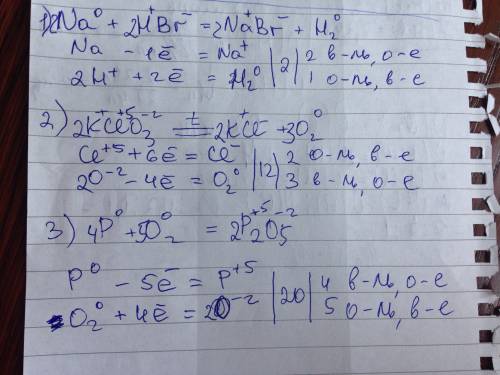 1) 2Na⁰ + 2H⁺Br⁻ = 2Na⁺Br⁻ + H₂⁰
Na - 1ē = Na⁺ |2| 2 в-ль, о-е
2H⁺ + 2ē = H₂⁰ | | 1 о-ль, в-е
2) 2K⁺Cl⁺⁵O₃⁻² =t= 2K⁺Cl⁻ + 3O₂⁰
Cl⁺⁵ + 6ē = Cl⁻ |12| 2 о-ль, в-е
2O⁻² - 4ē = O₂⁰ | | 3 в-ль, о-е
3) 4P⁰ + 5O₂⁰ = 2P₂⁺⁵O₅⁻²
P⁰ - 5ē = P⁺⁵ |20| 4 в-ль, о-е
O₂⁰ + 4ē = 2O⁻² | | 5 о-ль, в-е